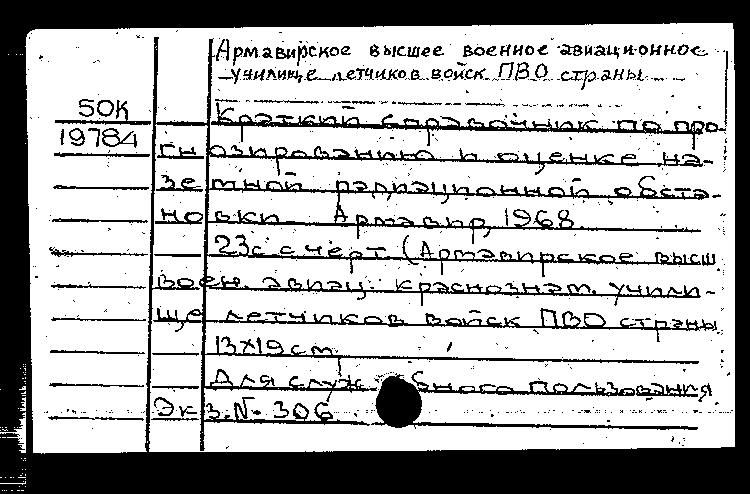 Армавирское высшее военное авиационное
училище летчиков войск ПВО страны
50К
Краткий справочник по про-
19784
гнозированию и оценке на-
земной радиационной обста-
новки Армавир, 1968.
23с с черт. (Армавирское высш
воен. авиац. краснознам. учили-
ще летчиков войск ПВО страны
13х19см.
Для служебного пользования
Экз. № 306